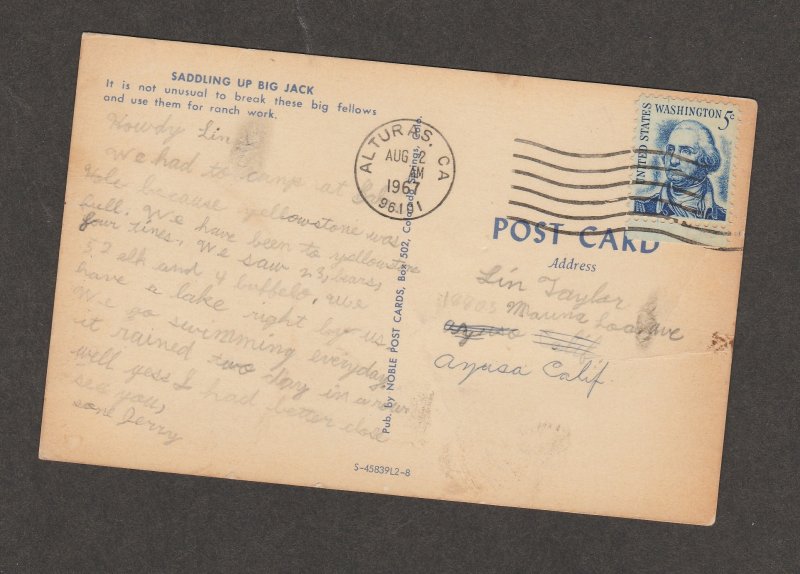 SADDLING UP BIG JACK
It is not unusual to break these big fellows
and use them for ranch work.
Howdy Lin
We had to camp at
Hole because yellowstone was
full. We have been to yellowstone
four times. We saw 23, bears,
52 elk and 4 buffelo. We
have a lake right by us
We go swimming everyday
it rained two day in a row
well yess I had better close
see you,
Jerry
Pub. by NOBLE POST CARDS, Box 502, Colorado Springs, Colo.
S-45839L2-B
ALTURAS, CA
AUG 2
AM
1967
96101
UNITED STATES
WASHINGTON 5c
POST CARD
Address
Lin Taylor
Mauna Loa ave
Azusa Calif.